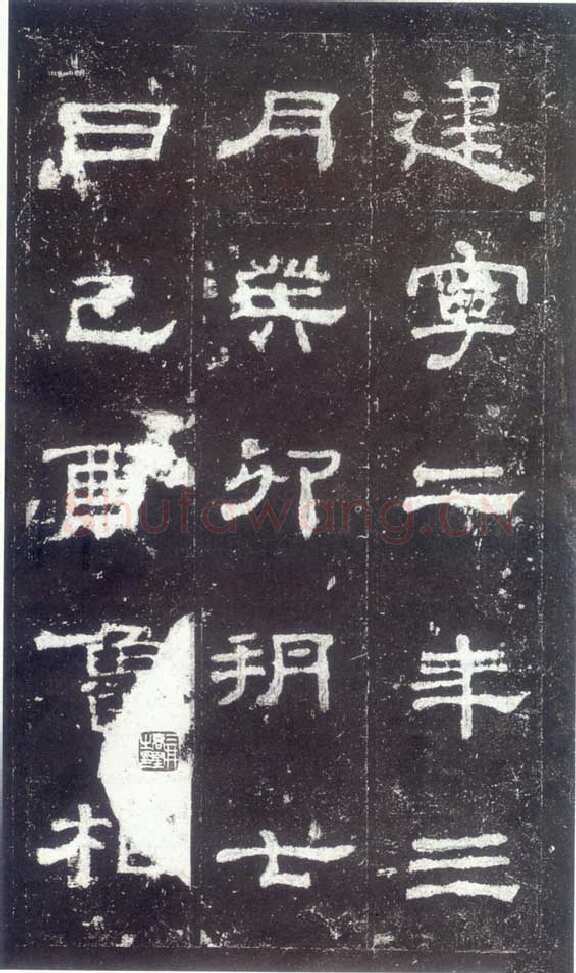 建寧二年三
月癸卯朔七
日己酉魯相
shufawang.CN